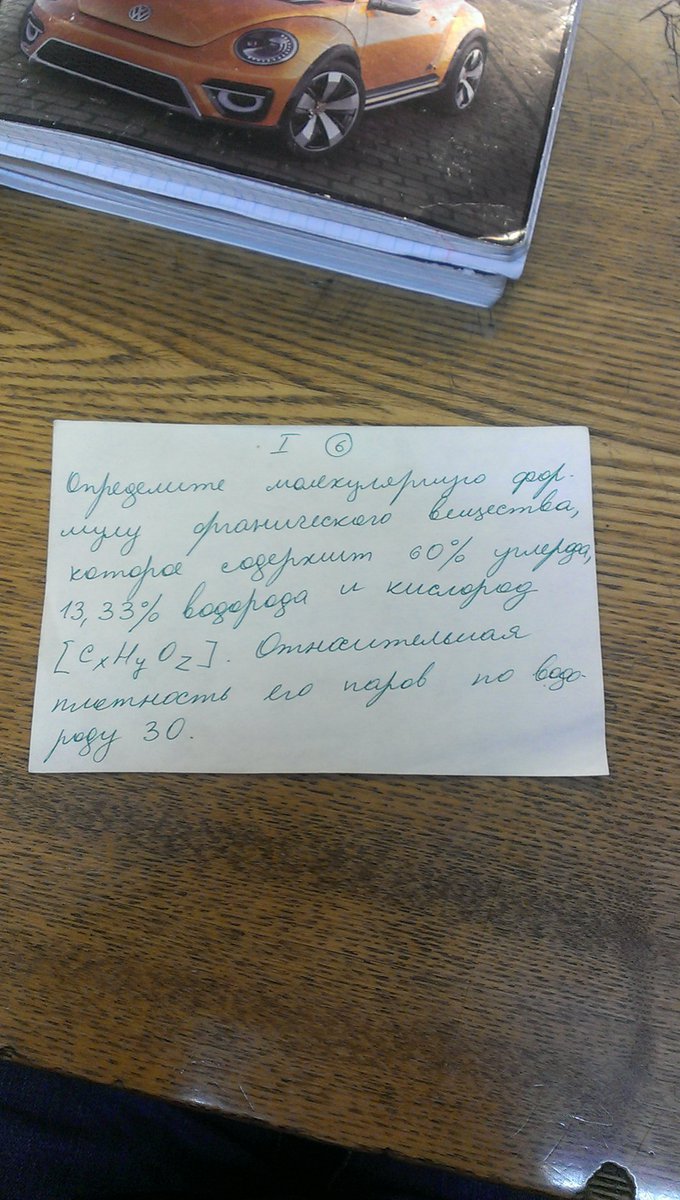 I 6
Определите молекулярную фор-
мулу органического вещества,
которое содержит 60% углерода,
13,33% водорода и кислород
[CxHyOz]. Относительная
плотность его паров по водо-
роду 30.